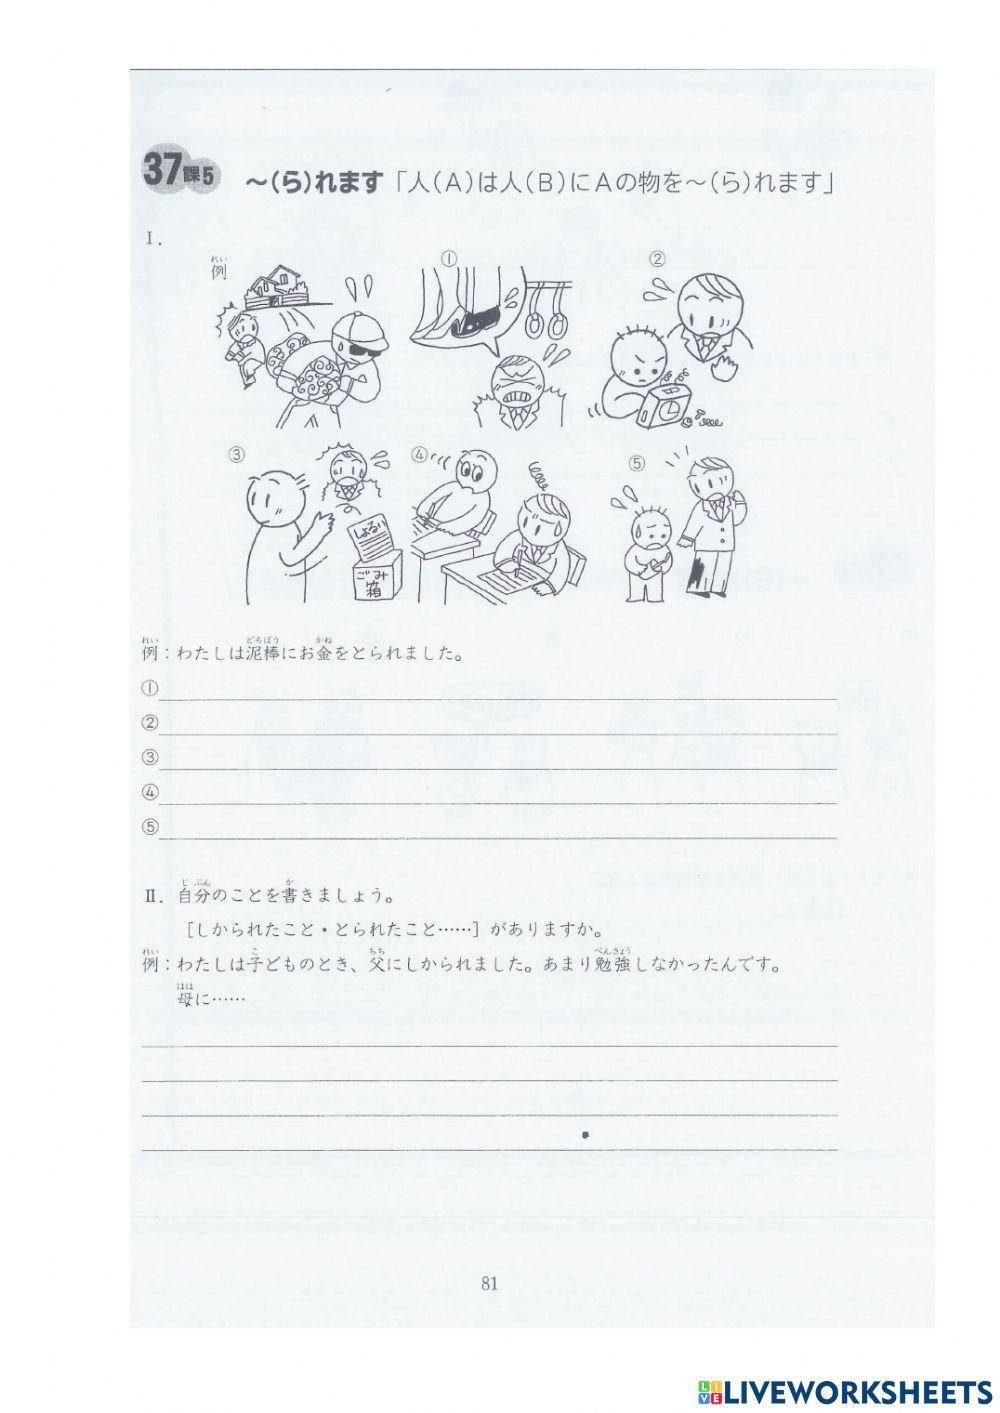 37課5
～(ら)れます「人(A)は人(B)にAの物を～(ら)れます」
Ⅰ.
れい
例
①
②
③
④
⑤
しょるい
ごみ箱
れい どろぼう かね
例：わたしは泥棒にお金をとられました。
①
②
③
④
⑤
じ ぶん か
Ⅱ. 自分のことを書きましょう。
[しかられたこと・とられたこと……]がありますか。
れい こ ちち べんきょう
例：わたしは子どものとき、父にしかられました。あまり勉強しなかったんです。
はは
母に……
81
LIVE LIVEWORKSHEETS